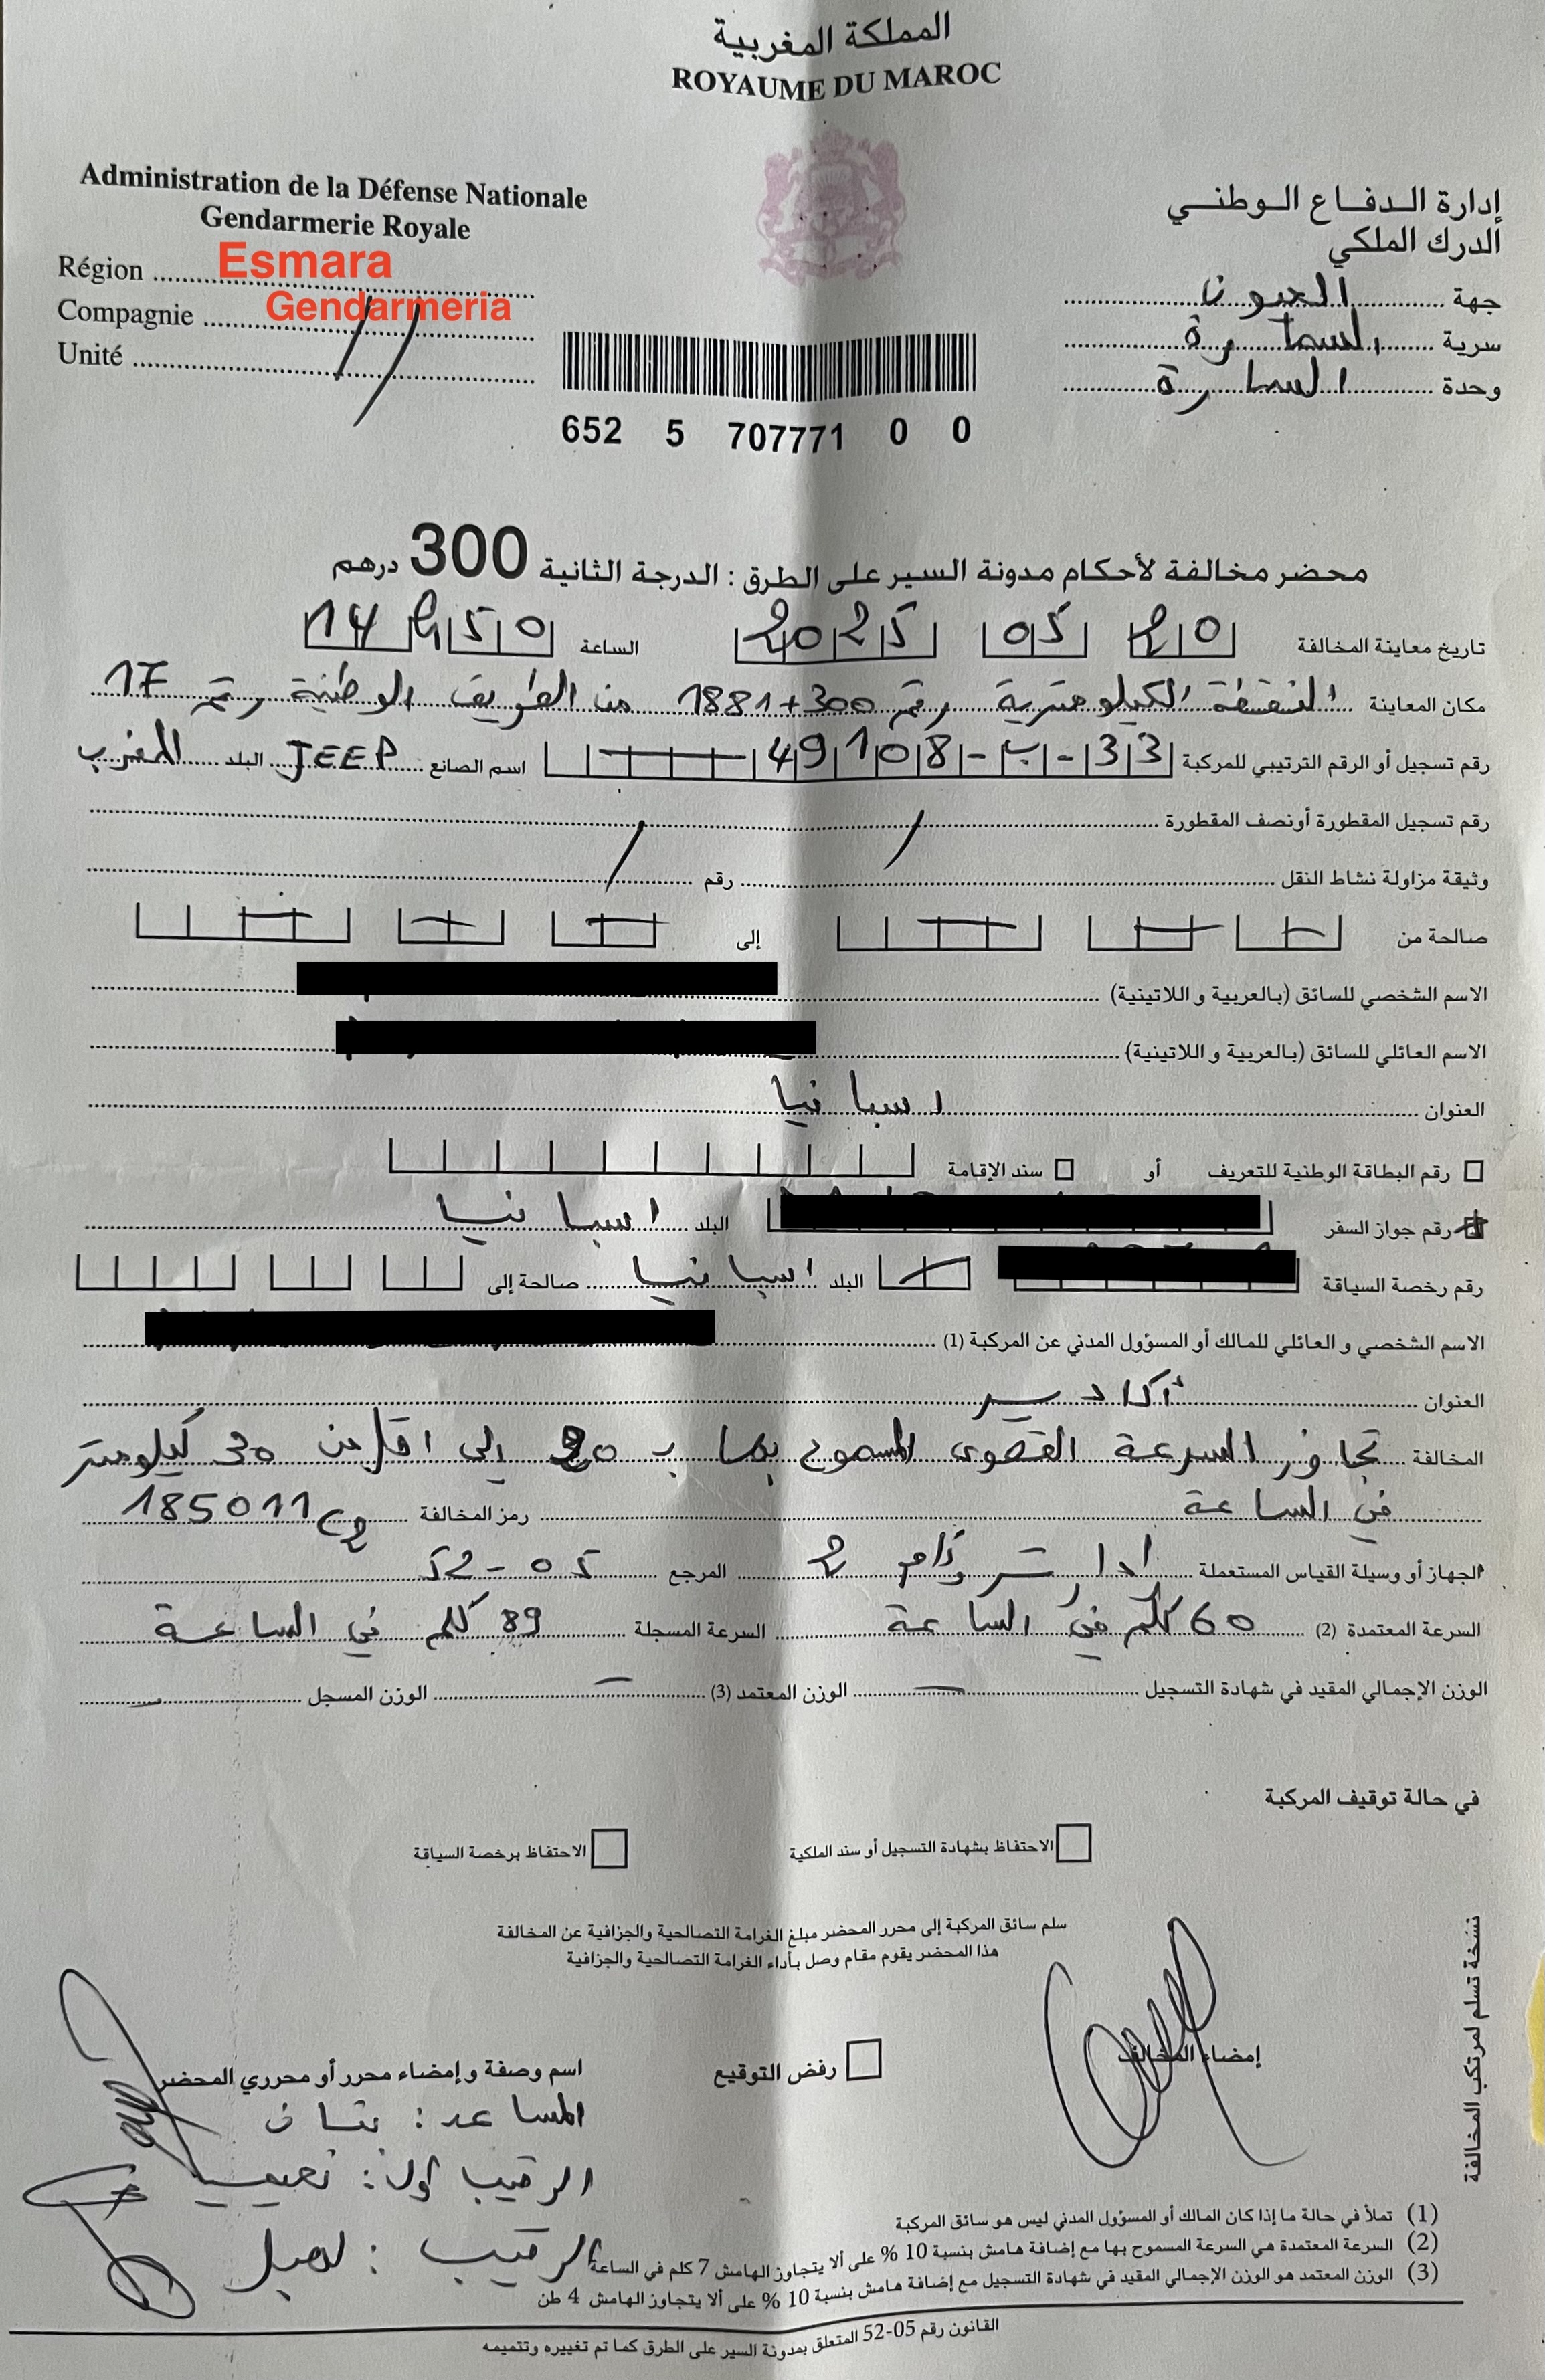 المملكة المغربية
ROYAUME DU MAROC
Administration de la Défense Nationale
Gendarmerie Royale
Région Esmara
Compagnie Gendarmeria
Unité
إدارة الدفاع الوطني
الدرك الملكي
جهة العيون
سرية السمارة
وحدة السمارة
652 5 707771 0 0
محضر مخالفة لأحكام مدونة السير على الطرق : الدرجة الثانية 300 درهم
تاريخ معاينة المخالفة 20 05 2025 الساعة 14h50
مكان المعاينة النقطة الكيلومترية رقم 300+1881 من الطريق الوطنية رقم 17
رقم تسجيل أو الرقم الترتيبي للمركبة 49108-ب-33 اسم الصانع JEEP البلد المغرب
رقم تسجيل المقطورة أونصف المقطورة
وثيقة مزاولة نشاط النقل / رقم /
صالحة من إلى
الاسم الشخصي للسائق (بالعربية و اللاتينية)
الاسم العائلي للسائق (بالعربية و اللاتينية)
العنوان اسبانيا
رقم البطاقة الوطنية للتعريف أو سند الإقامة
رقم جواز السفر البلد اسبانيا
رقم رخصة السياقة البلد اسبانيا صالحة إلى
الاسم الشخصي و العائلي للمالك أو المسؤول المدني عن المركبة (1)
العنوان أكادير
المخالفة تجاوز السرعة القصوى المسموح بها ب 20 إلى اقل من 30 كيلومتر
في الساعة رمز المخالفة 185011c2
الجهاز أو وسيلة القياس المستعملة 2 المرجع 52-05
السرعة المعتمدة (2) 60 كلم في الساعة السرعة المسجلة 89 كلم في الساعة
الوزن الإجمالي المقيد في شهادة التسجيل — الوزن المعتمد (3) — الوزن المسجل —
في حالة توقيف المركبة
الاحتفاظ بشهادة التسجيل أو سند الملكية الاحتفاظ برخصة السياقة
سلم سائق المركبة إلى محرر المحضر مبلغ الغرامة التصالحية والجزافية عن المخالفة
هذا المحضر يقوم مقام وصل بأداء الغرامة التصالحية والجزافية
إمضاء المخالف رفض التوقيع اسم وصفة و إمضاء محرر أو محرري المحضر
المساعد :
الرقيب أول :
الرقيب :
نسخة تسلم لمرتكب المخالفة
(1) تملأ في حالة ما إذا كان المالك أو المسؤول المدني ليس هو سائق المركبة
(2) السرعة المعتمدة هي السرعة المسموح بها مع إضافة هامش بنسبة 10 % على ألا يتجاوز الهامش 7 كلم في الساعة
(3) الوزن المعتمد هو الوزن الإجمالي المقيد في شهادة التسجيل مع إضافة هامش بنسبة 10 % على ألا يتجاوز الهامش 4 طن
القانون رقم 05-52 المتعلق بمدونة السير على الطرق كما تم تغييره وتتميمه